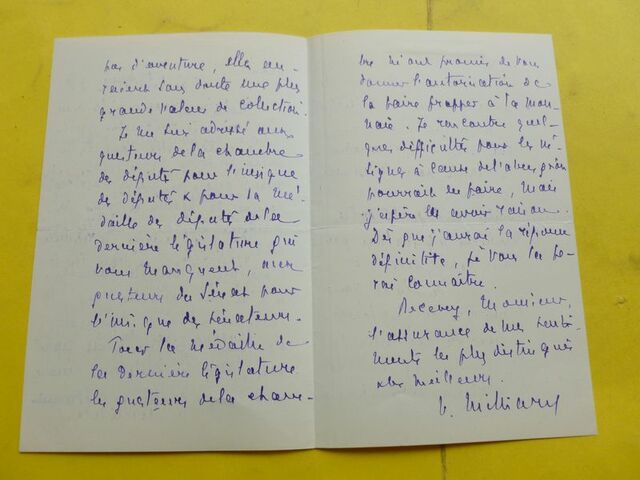 par d'aventure, elles au-
raient sans doute une plus
grande valeur de collection.
Je me suis adressé aux
questeurs de la chambre
des députés pour l'insigne
de député & pour la mé-
daille des députés de la
dernière législature qui
vous manquent, aux
questeurs du Sénat pour
l'insigne des sénateurs.
Pour la médaille de
la dernière législature
les questeurs de la cham-
bre m'ont promis de vous
donner l'autorisation de
la faire frapper à la mon-
naie. Je rencontre quel-
ques difficultés pour les in-
signes à cause de l'abus qu'on
pourrait en faire, mais
j'espère en avoir raison.
Dès que j'aurai la réponse
définitive, je vous la fe-
rai connaître.
Recevez, Monsieur,
l'assurance de mes senti-
ments les plus distingués
les meilleurs.
V. Milliard